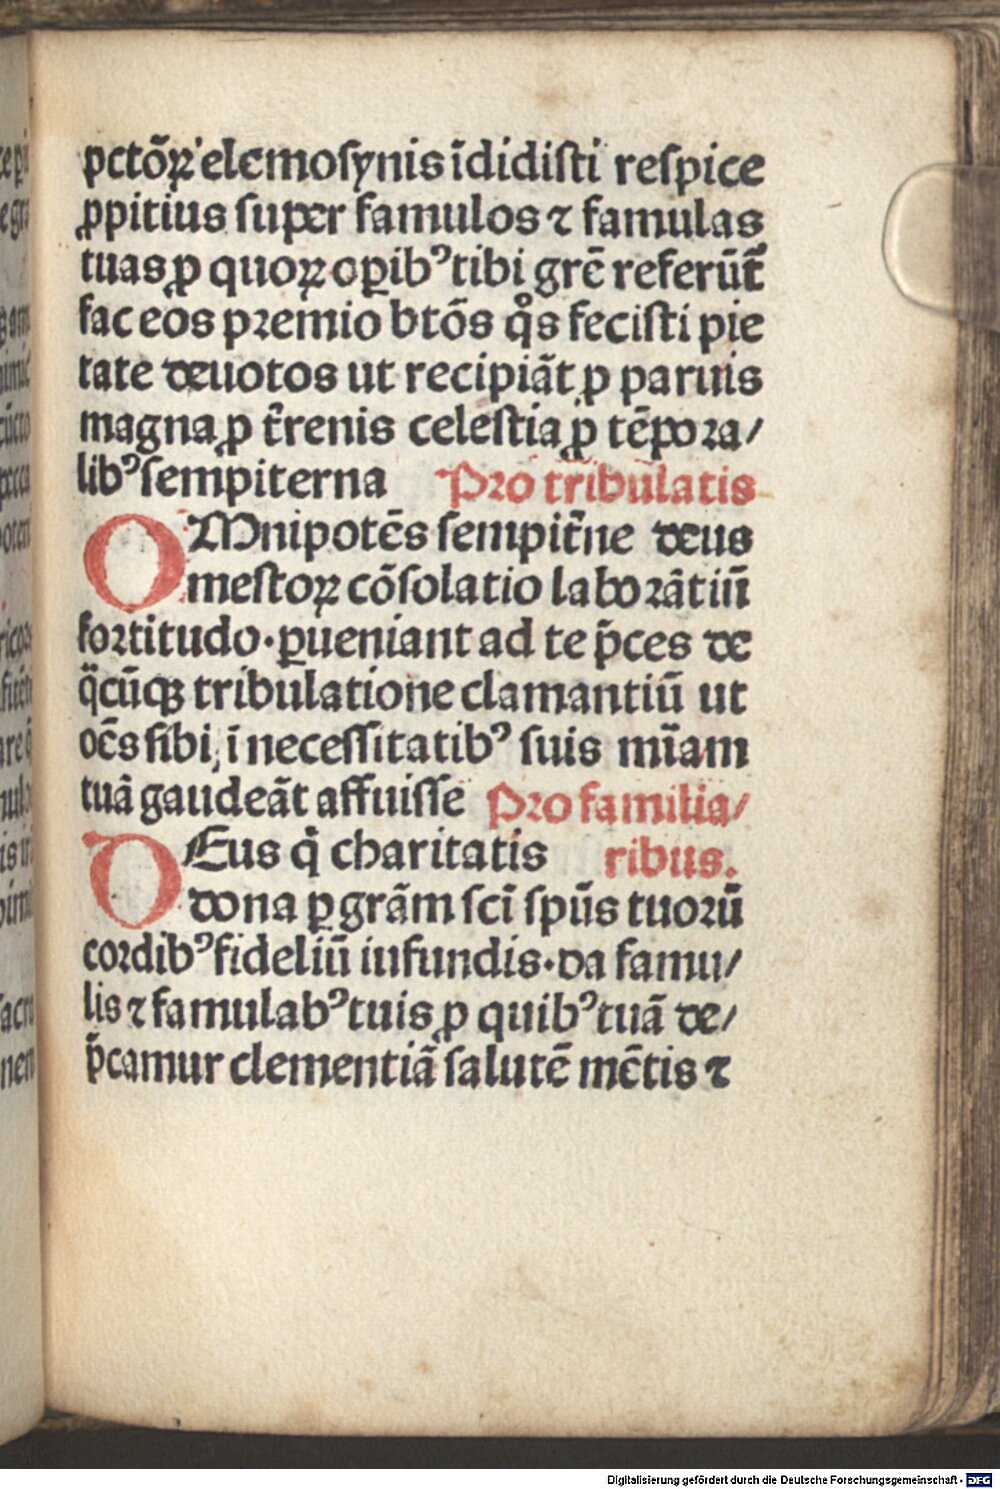 pctõꝝ elemosynis ĩdidisti respice
ꝓpitius super famulos ⁊ famulas
tuas ꝓ quoꝝ oꝑibꝰ tibi grẽ referũt̃
fac eos premio btõs qͦs fecisti pie
tate deuotos ut recipiãt ꝓ paruis
magna ꝓ t̃renis celestia ꝓ tẽpora/
libꝰ sempiterna Pro tribulatis
OMnipotẽs sempit̃ne deus
mestoꝝ cõsolatio laborãtiũ
fortitudo · ꝑueniant ad te p̃ces de
q̃cũqꝫ tribulatione clamantiũ ut
oẽs sibi ĩ necessitatibꝰ suis mĩam
tuã gaudeãt affuisse Pro familia/
DEus q̇ charitatis ribus.
dona ꝑ grãm scĩ spũs tuorũ
cordibꝰ fideliũ iufundis · da famu/
lis ⁊ famulabꝰ tuis ꝓ quibꝰ tuã de/
p̃camur clementiã salutẽ mẽtis ⁊
Digitalisierung gefördert durch die Deutsche Forschungsgemeinschaft - DFG